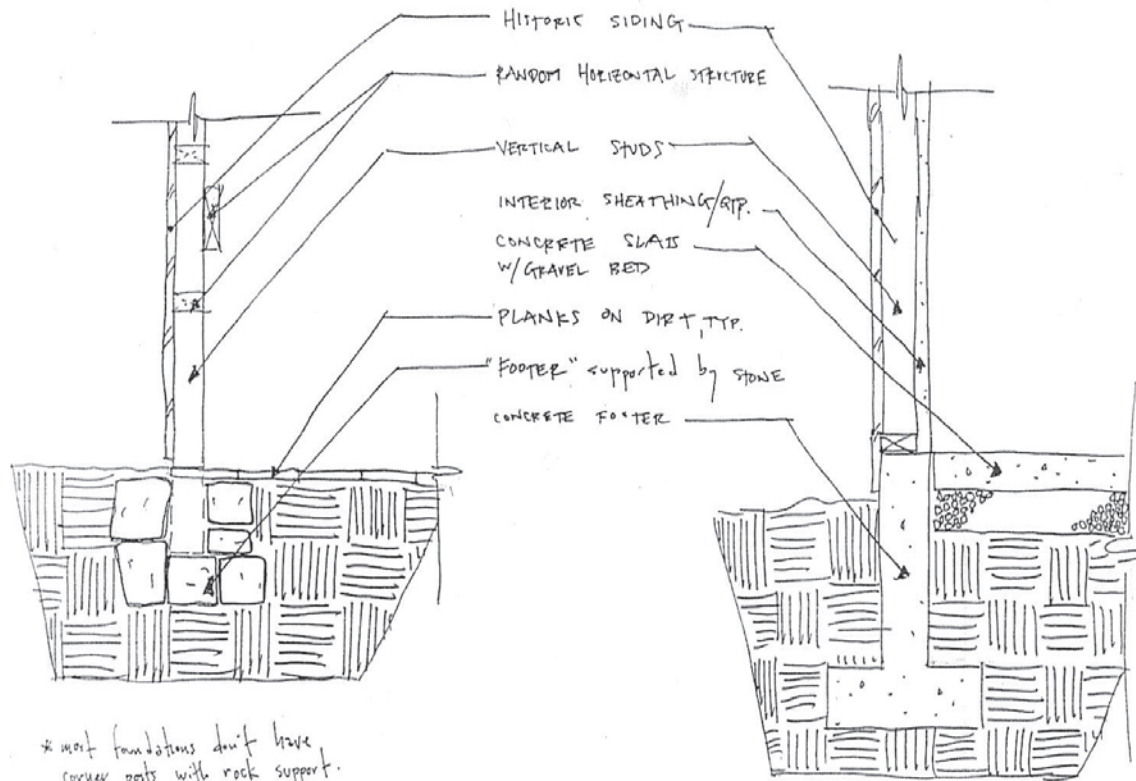 HISTORIC SIDING
RANDOM HORIZONTAL STRUCTURE
VERTICAL STUDS
INTERIOR SHEATHING/GYP.
CONCRETE SLAB
W/GRAVEL BED
PLANKS ON DIRT, TYP.
"FOOTER" supported by STONE
CONCRETE FOOTER
* most foundations don't have
corner posts with rock support.